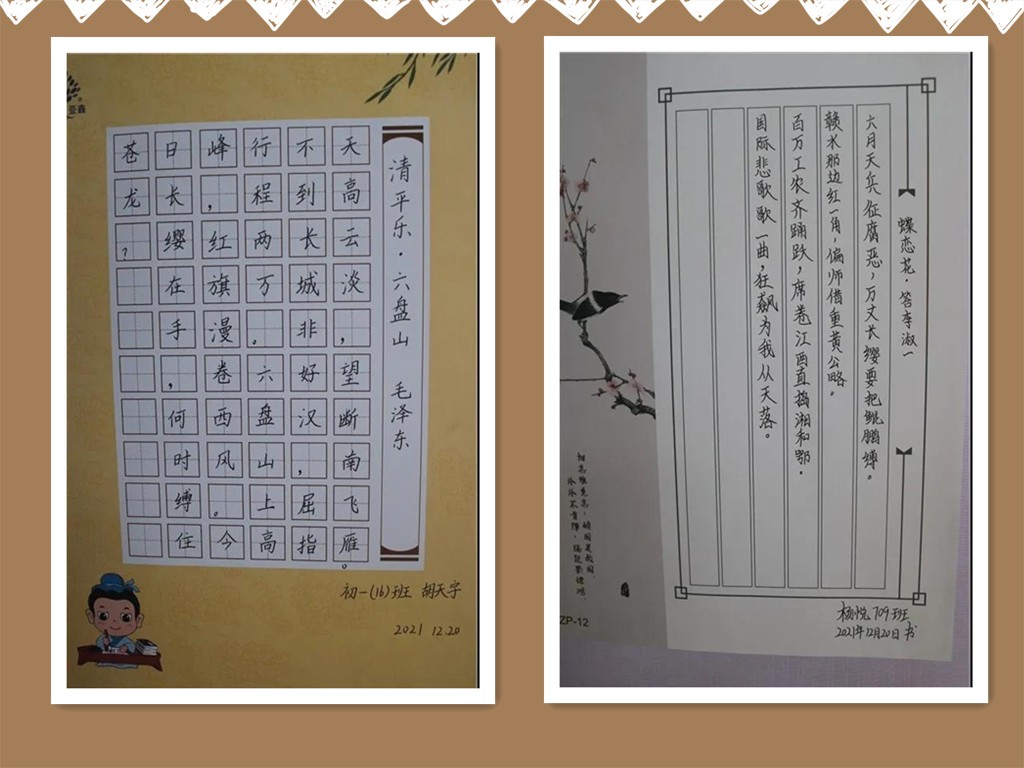 清平乐·六盘山 毛泽东
天高云淡，望断南飞雁。
不到长城非好汉，屈指
行程两万。六盘山上高
峰，红旗漫卷西风。今
日长缨在手，何时缚住
苍龙？
初一(16)班 胡天宇
2021 12.20
蝶恋花·答李淑一
六月天兵征腐恶，万丈长缨要把鲲鹏缚。
赣水那边红一角，偏师借重黄公略。
百万工农齐踊跃，席卷江西直捣湘和鄂.
国际悲歌歌一曲，狂飙为我从天落。
杨悦 709班
2021年12月20日书
ZP-12